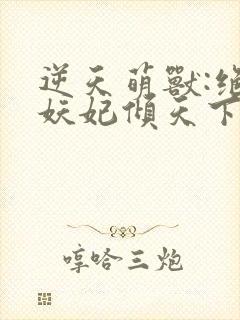 逆天萌獸:
妖妃傾天下
哼哈三炮